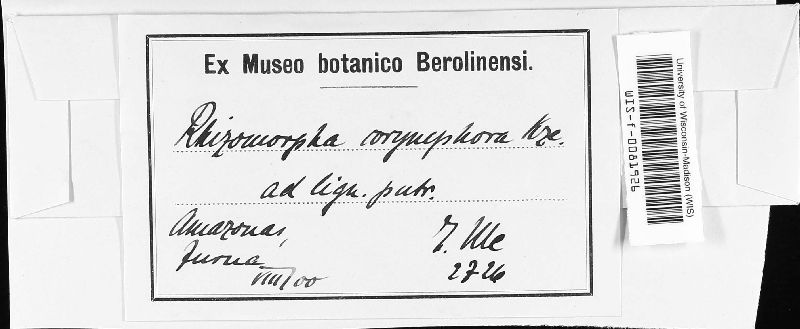 Ex Museo botanico Berolinensi.
Rhizomorpha corynephora Kze.
ad lign. putr.
Amazonas,
Jurua
VIII/00
E. Ule
2726
University of Wisconsin-Madison (WIS)
WIS-f-0081926